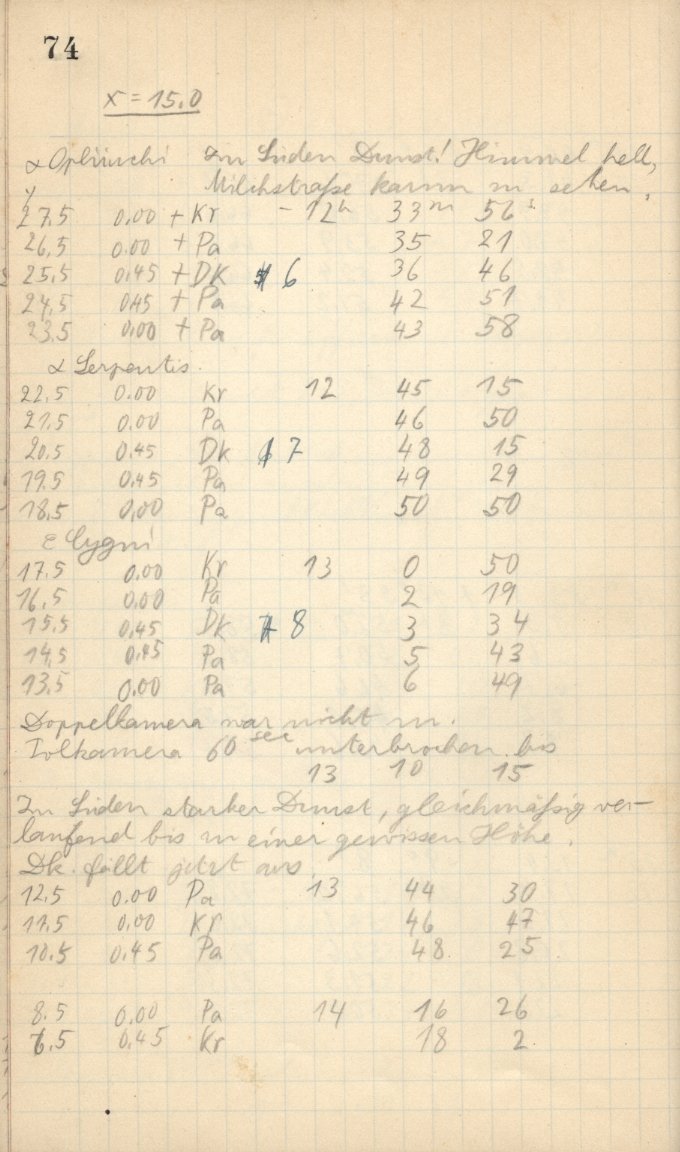 74
x = 15.0
α Ophiuchi Im Süden Dunst! Himmel hell,
Milchstraße kaum zu sehen.
y
27.5 0.00 + Kr – 12h 33m 56s
26,5 0.00 + Pa 35 21
25,5 0.45 + DK 6 36 46
24,5 0.45 + Pa 42 51
23,5 0.00 + Pa 43 58
α Serpentis.
22,5 0.00 Kr 12 45 15
21,5 0.00 Pa 46 50
20,5 0.45 DK 7 48 15
19.5 0.45 Pa 49 29
18,5 0,00 Pa 50 50
ε Cygni
17.5 0.00 Kr 13 0 50
16,5 0.00 Pa 2 19
15.5 0,45 DK 8 3 34
14,5 0.45 Pa 5 43
13,5 0.00 Pa 6 49
Doppelkamera war nicht zu.
Polkamera 60 sec unterbrochen bis
13 10 15
Im Süden starker Dunst, gleichmäßig ver-
laufend bis zu einer gewissen Höhe.
Dk. fällt jetzt aus.
12,5 0.00 Pa 13 44 30
11.5 0,00 Kr 46 47
10.5 0,45 Pa 48 25
8.5 0.00 Pa 14 16 26
6.5 0.45 Kr 18 2